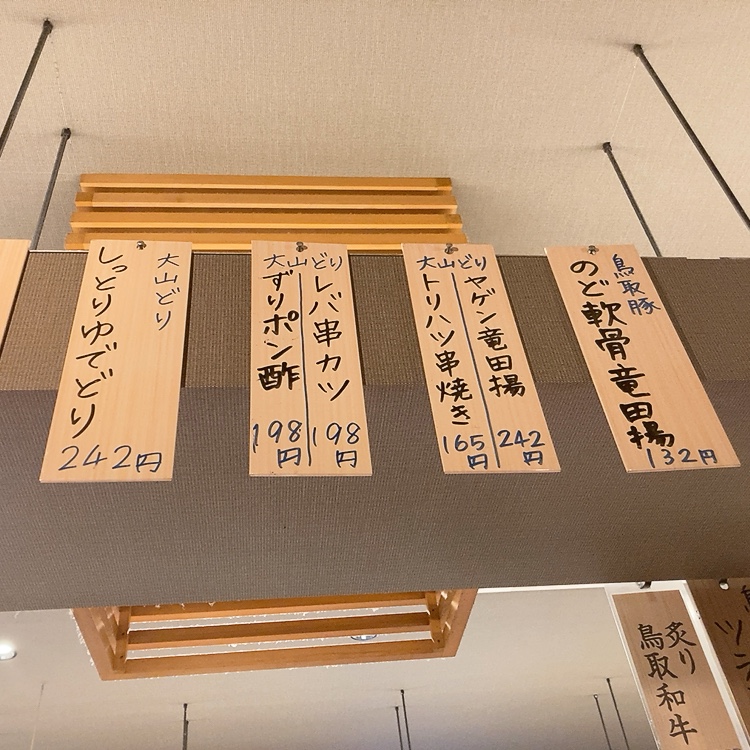 鳥取豚
のど軟骨竜田揚
132円
大山どり
ヤゲン竜田揚
242円
トリハツ串焼き
165円
大山どり
レバ串カツ
198円
ずりポン酢
198円
大山どり
しっとりゆでどり
242円
炙り
鳥取和牛